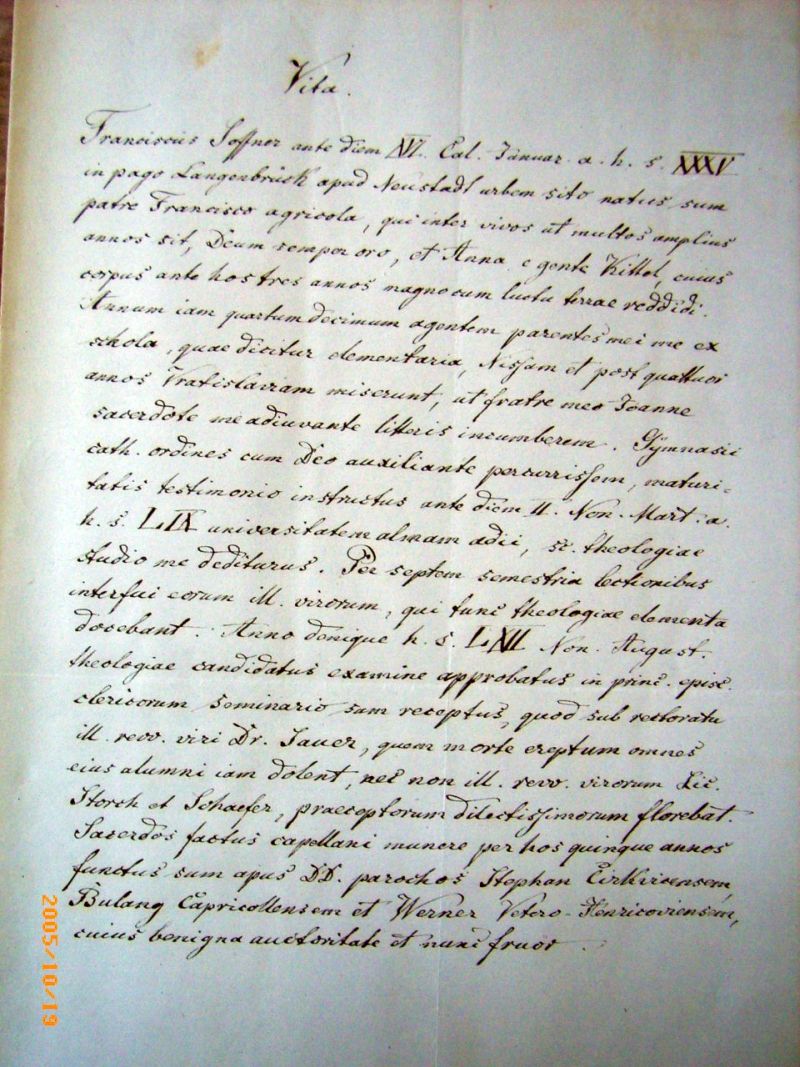 Vita.
Franciscus Soffner ante diem XVI. Cal. Januar. a. h. s. XXXV
in pago Langenbrück apud Neustadt urbem sito natus sum
patre Francisco agricola, qui inter vivos ut multos amplius
annos sit, Deum semper oro, et Anna e gente Kittel, cuius
corpus ante hos tres annos magno cum luctu terrae reddidi.
Annum iam quartum decimum agentem parentes mei me ex
schola, quae dicitur elementaria, Nissam et post quattuor
annos Vratislaviam miserunt, ut fratre meo Joanne
sacerdote me adiuvante litteris incumberem. Gymnasii
cath. ordines cum Deo auxiliante percurrissem, maturi-
tatis testimonio instructus ante diem II. Non. Mart. a.
h. s. LIX universitatem almam adii, sc. theologiae
studio me dediturus. Per septem semestria lectionibus
interfui eorum ill. virorum, qui tunc theologiae elementa
docebant. Anno denique h. s. LXII Non. August.
theologiae candidatus examine approbatus in princ. episc.
clericorum seminario sum receptus, quod sub rectoratu
ill. revv. viri Dr. Sauer, quem morte ereptum omnes
eius alumni iam dolent, nec non ill. revv. virorum Lic.
Storch et Schaefer, praeceptorum dilectissimorum florebat.
Sacerdos factus capellani munere per hos quinque annos
functus sum apus DD. parochos Stephan Cirkvicensem,
Bulang Capricollensem et Werner Vetero-Henricoviensem,
cuius benigna auctoritate et nunc fruor.
2005/10/19